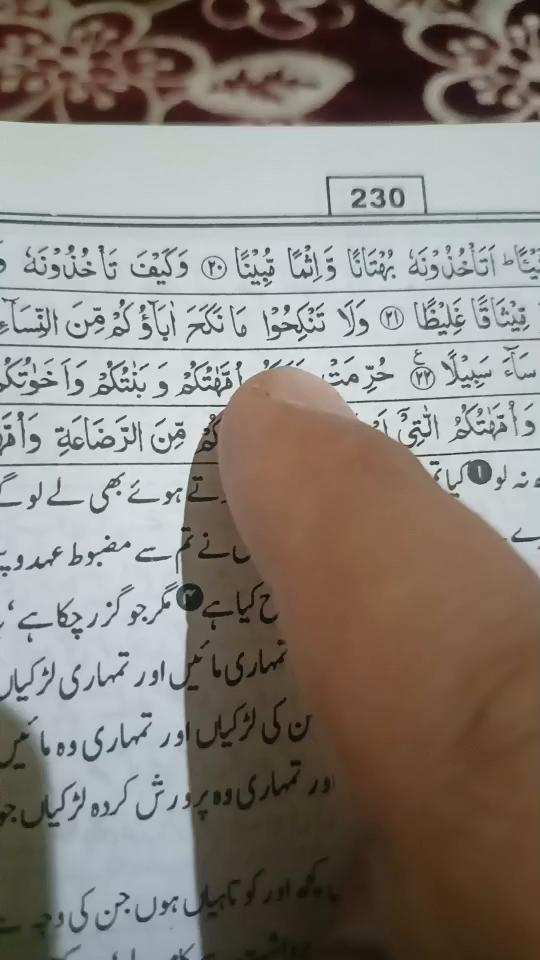 230
اَتَاْخُذُوْنَهٗ بُهْتَانًا وَّاِثْمًا مُّبِيْنًا ﴿۲۰﴾ وَكَيْفَ تَاْخُذُوْنَهٗ
مِّيْثَاقًا غَلِيْظًا ﴿۲۱﴾ وَلَا تَنْكِحُوْا مَا نَكَحَ اٰبَآؤُكُمْ مِّنَ النِّسَآءِ
سَآءَ سَبِيْلًا ﴿۲۲﴾ ع حُرِّمَتْ اُمَّهٰتُكُمْ وَبَنٰتُكُمْ وَاَخَوٰتُكُمْ
وَاُمَّهٰتُكُمُ الّٰتِيْٓ كُمْ مِّنَ الرَّضَاعَةِ
نہ لو ۱ کیا ہوئے بھی لے لو گے
نے تم سے مضبوط عہد و
کیا ہے ۳ مگر جو گزر چکا ہے،
تمہاری مائیں اور تمہاری لڑکیاں
کی لڑکیاں اور تمہاری وہ مائیں
اور تمہاری وہ پرورش کردہ لڑکیاں جو
کچھ اور کوتاہیاں ہوں جن کی وجہ